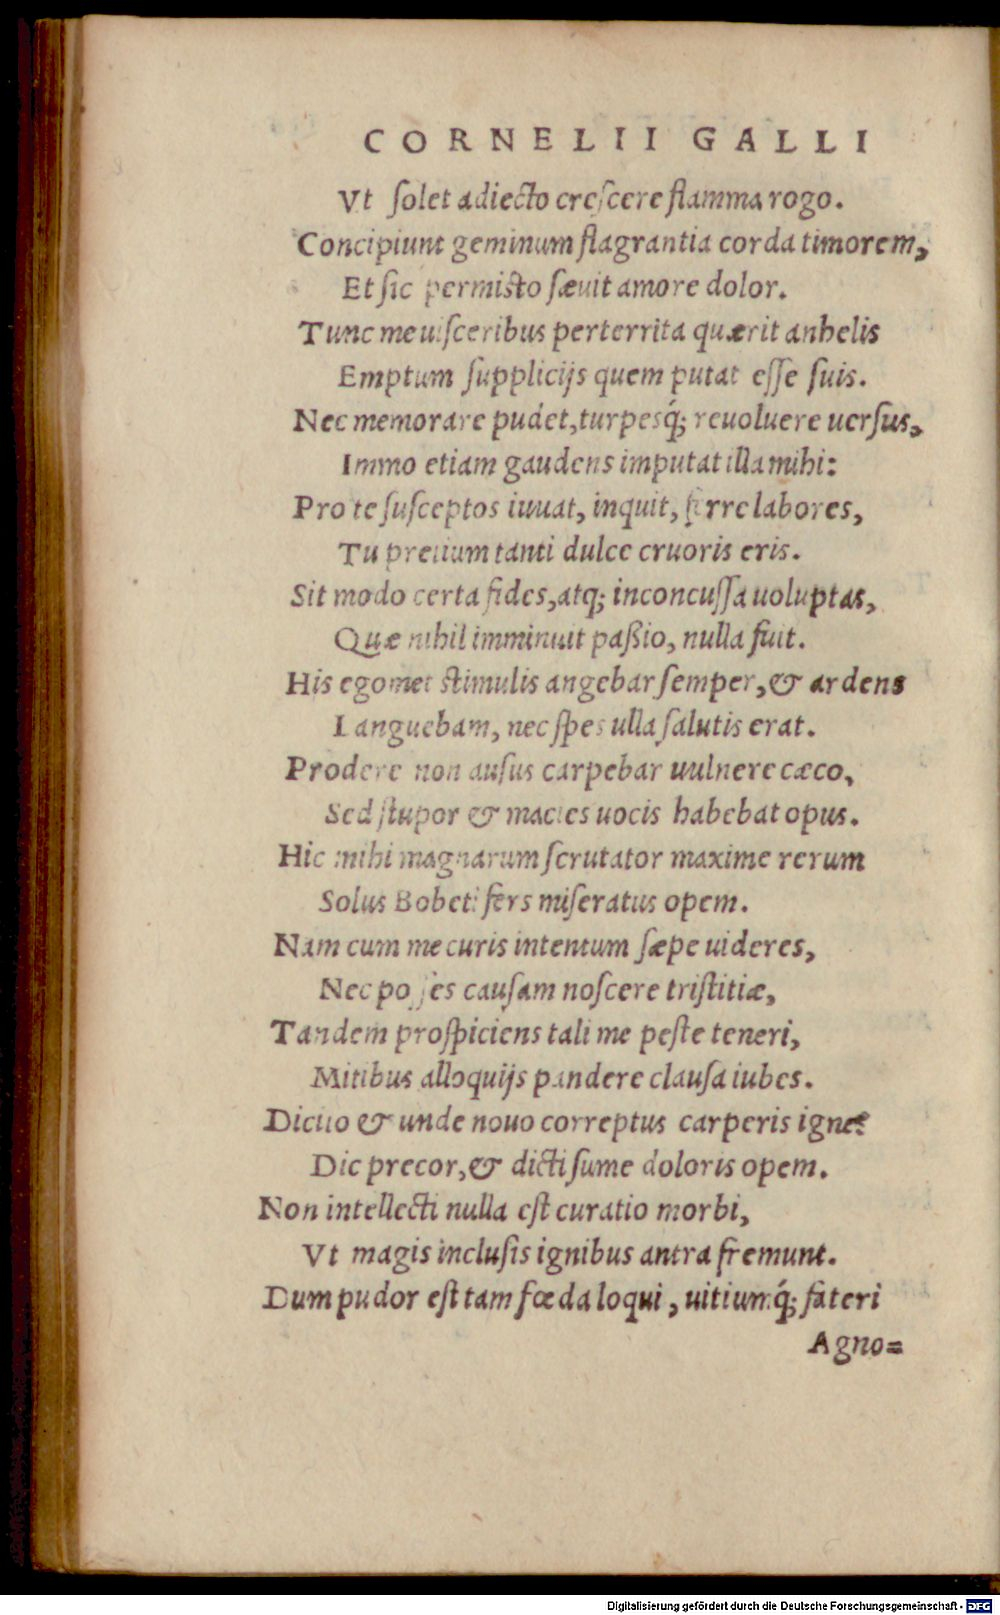 CORNELII GALLI
Vt ſolet adiecto creſcere flamma rogo.
Concipiunt geminum flagrantia corda timorem,
Et ſic permisto ſæuit amore dolor.
Tunc me uiſceribus perterrita quærit anhelis
Emptum ſupplicijs quem putat eſſe ſuis.
Nec memorare pudet, turpesq́; reuoluere uerſus,
Immo etiam gaudens imputat illa mihi:
Pro te ſuſceptos iuuat, inquit, ferre labores,
Tu pretium tanti dulce cruoris eris.
Sit modo certa fides, atq; inconcuſſa uoluptas,
Quæ nihil imminuit paßio, nulla fuit.
His egomet stimulis angebar ſemper, & ardens
Languebam, nec ſpes ulla ſalutis erat.
Prodere non auſus carpebar uulnere cæco,
Sed ſtupor & macies uocis habebat opus.
Hic mihi magnarum ſcrutator maxime rerum
Solus Boeti fers miſeratus opem.
Nam cum me curis intentum ſæpe uideres,
Nec poſſes cauſam noſcere triſtitiæ,
Tandem proſpiciens tali me peſte teneri,
Mitibus alloquijs pandere clauſa iubes.
Dicito & unde nouo correptus carperis igne?
Dic precor, & dicti ſume doloris opem.
Non intellecti nulla eſt curatio morbi,
Vt magis incluſis ignibus antra fremunt.
Dum pudor eſt tam fœda loqui, uitiumq́; fateri
Agno=
Digitalisierung gefördert durch die Deutsche Forschungsgemeinschaft - DFG